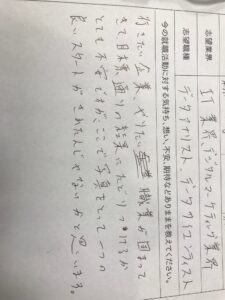 志望業界
IT業界、デジタルマーケティング業界
志望職種
データアナリスト データサイエンティスト
今の就職活動に対する気持ち、想い、不安、期待などありままを教えてください。
行きたい企業、やりたい 職業が固まって
きて日本業、通りの結果にたどりつけるか
とても不安ですが、ここで写真をとって一つの
良いスタートがきれたんじゃないかと思います。